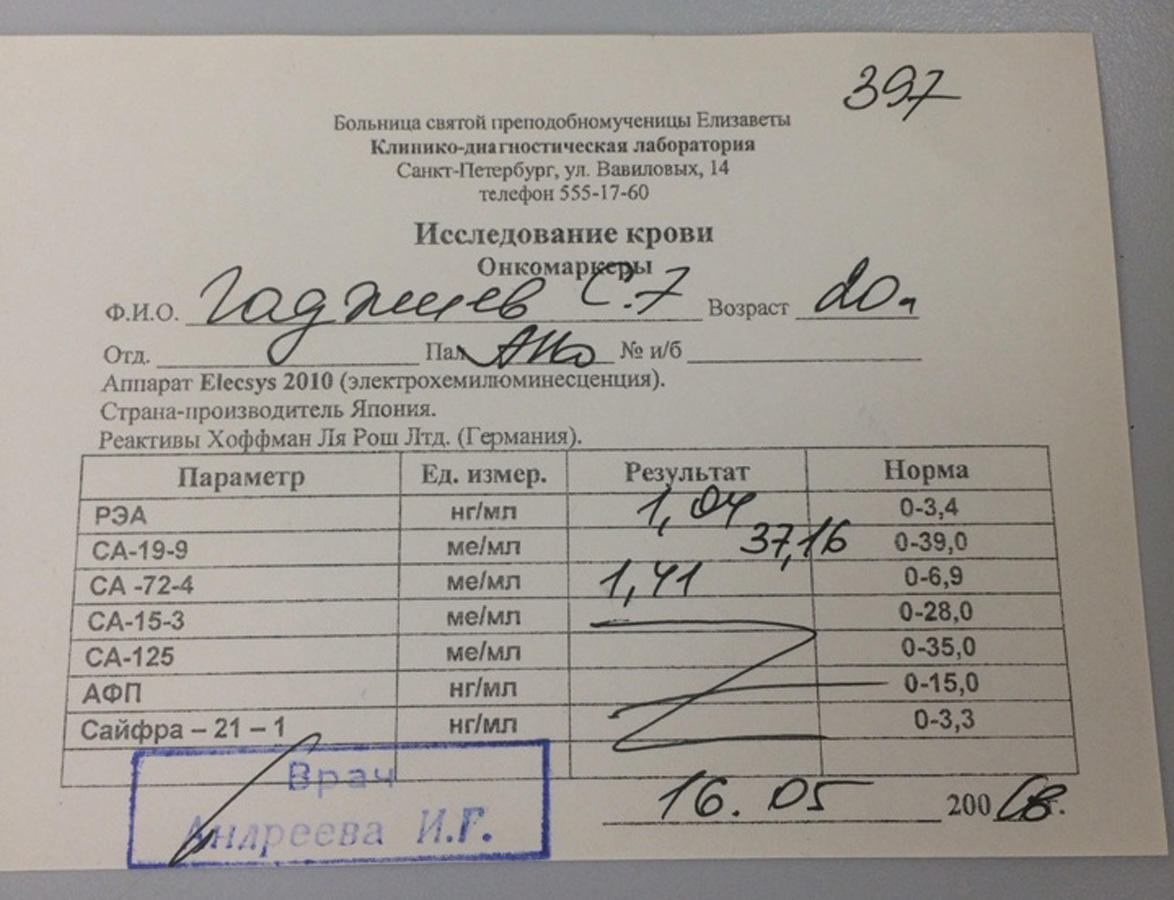 397
Больница святой преподобномученицы Елизаветы
Клинико-диагностическая лаборатория
Санкт-Петербург, ул. Вавиловых, 14
телефон 555-17-60
Исследование крови
Онкомаркеры
Ф.И.О. Гаджиев С.Г Возраст 20л
Отд. Пал № и/б
Аппарат Elecsys 2010 (электрохемилюминесценция).
Страна-производитель Япония.
Реактивы Хоффман Ля Рош Лтд. (Германия).
Параметр Ед. измер. Результат Норма
РЭА нг/мл 1,04 0-3,4
СА-19-9 ме/мл 37,16 0-39,0
СА -72-4 ме/мл 1,41 0-6,9
СА-15-3 ме/мл 0-28,0
СА-125 ме/мл 0-35,0
АФП нг/мл 0-15,0
Сайфра – 21 – 1 нг/мл 0-3,3
Врач
Андреева И.Г.
16. 05 200 г.